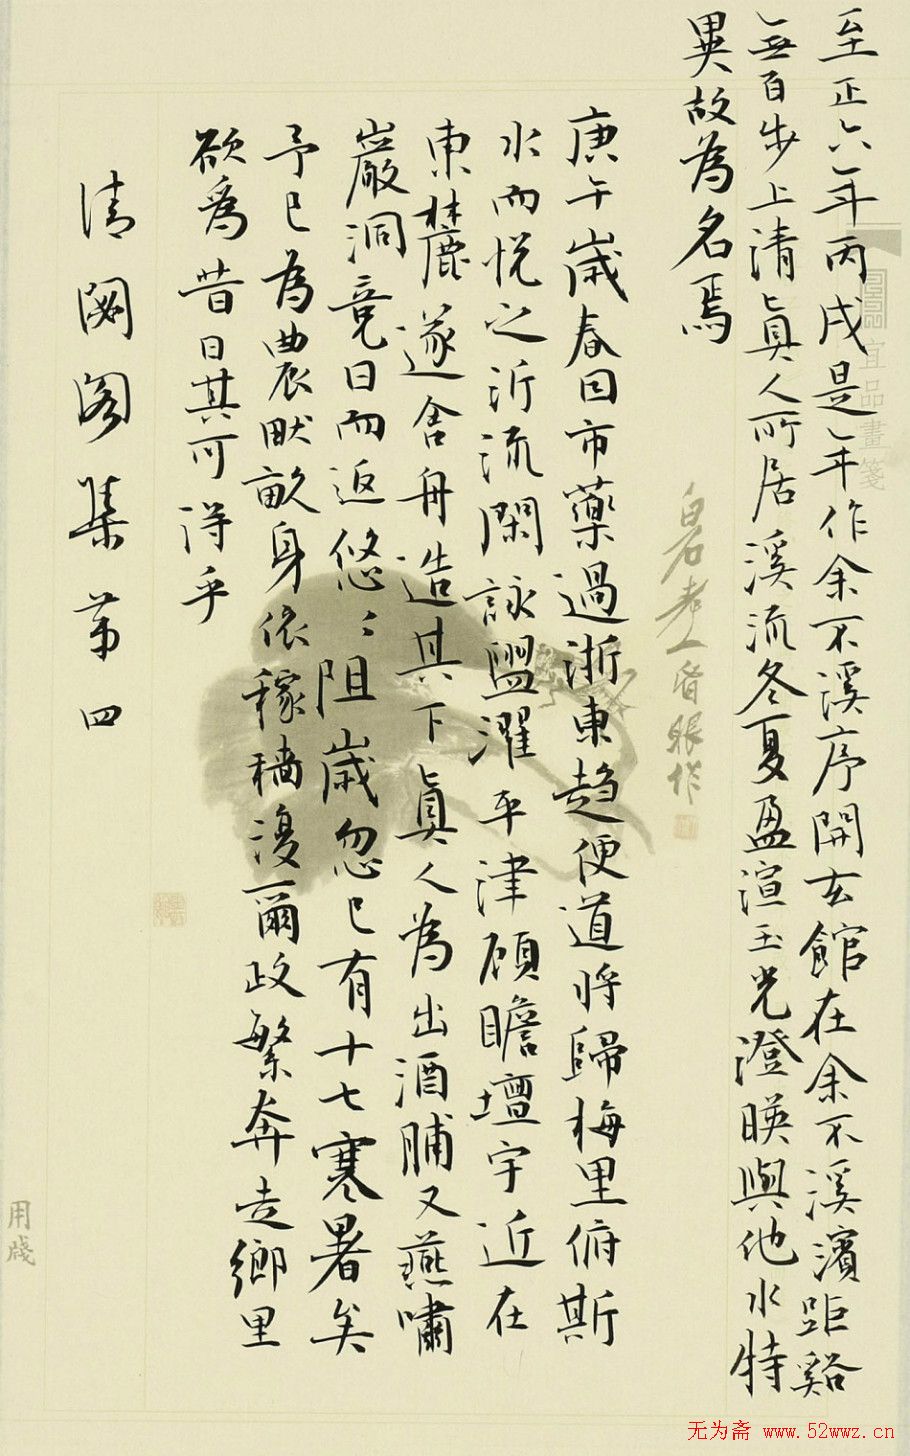 至正六年丙戌是年作余不溪序開玄館在余不溪濱距谿
無百步上清真人所居溪流冬夏盈渲玉光澄暎與他水特
異故為名焉
庚午歲春因市藥過浙東趋便道将歸梅里俯斯
水而悦之沂流閑詠盥濯平津顧瞻壇宇近在
東麓遂舍舟造其下真人為出酒脯又燕嘯
巖洞竟日而返悠〻阻歲忽已有十七寒暑矣
予已為農畎畝身依稼穡漫爾政繁奔走鄉里
欲爲昔日其可得乎
清閟阁集第四
宜品畫箋
白石老人
用牋
无为斋 www.52wwz.cn